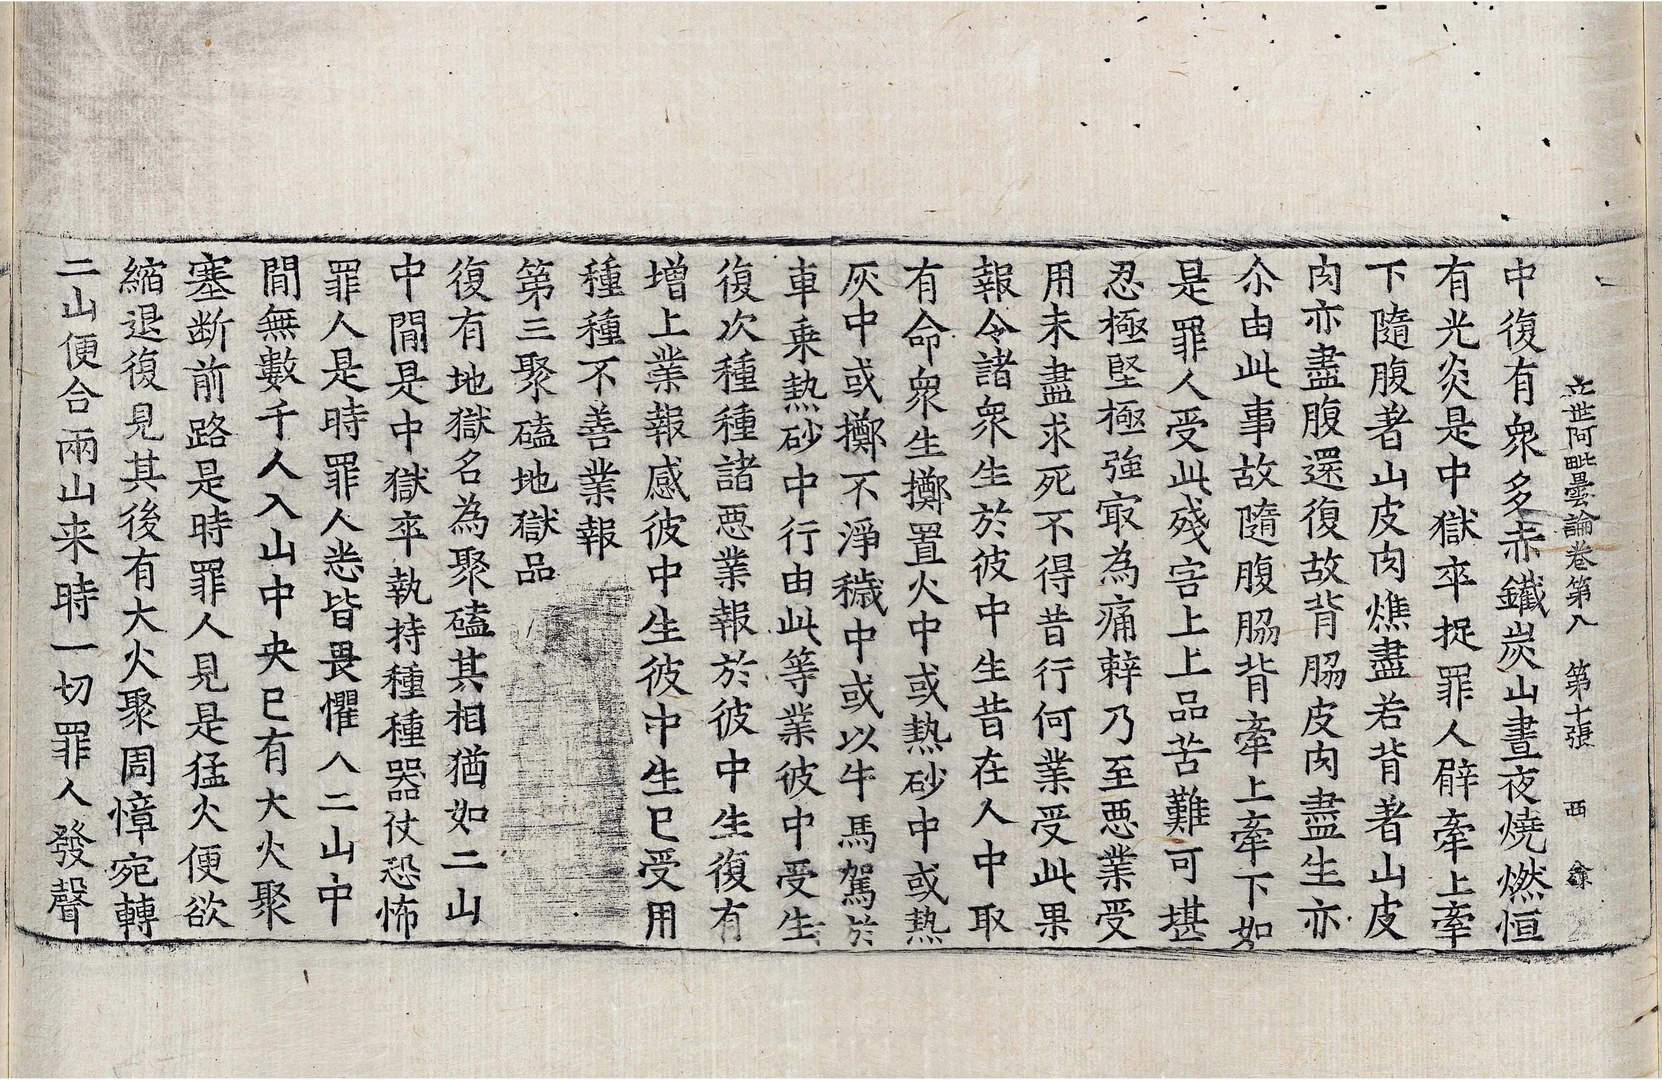 立世阿毗曇論卷第八　第十張　西
中復有衆多赤鐵炭山晝夜燒燃恒
有光炎是中獄卒捉罪人臂牽上牽
下隨腹著山皮肉燋盡若背著山皮
肉亦盡腹還復故背脇皮肉盡生亦
尒由此事故隨腹脇背牽上牽下如
是罪人受此殘害上上品苦難可堪
忍極堅極強㝡為痛辢乃至惡業受
用未盡求死不得昔行何業受此果
報令諸衆生於彼中生昔在人中取
有命衆生擲置火中或熱砂中或熱
灰中或擲不淨穢中或以牛馬駕於
車乗熱砂中行由此等業彼中受生
復次種種諸惡業報於彼中生復有
增上業報感彼中生彼中生已受用
種種不善業報
第三聚磕地獄品
復有地獄名為聚磕其相猶如二山
中間是中獄卒執持種種器仗恐怖
罪人是時罪人悉皆畏懼入二山中
間無數千人入山中央已有大火聚
塞断前路是時罪人見是猛火便欲
縮退復見其後有大火聚周慞宛轉
二山便合兩山来時一切罪人發聲